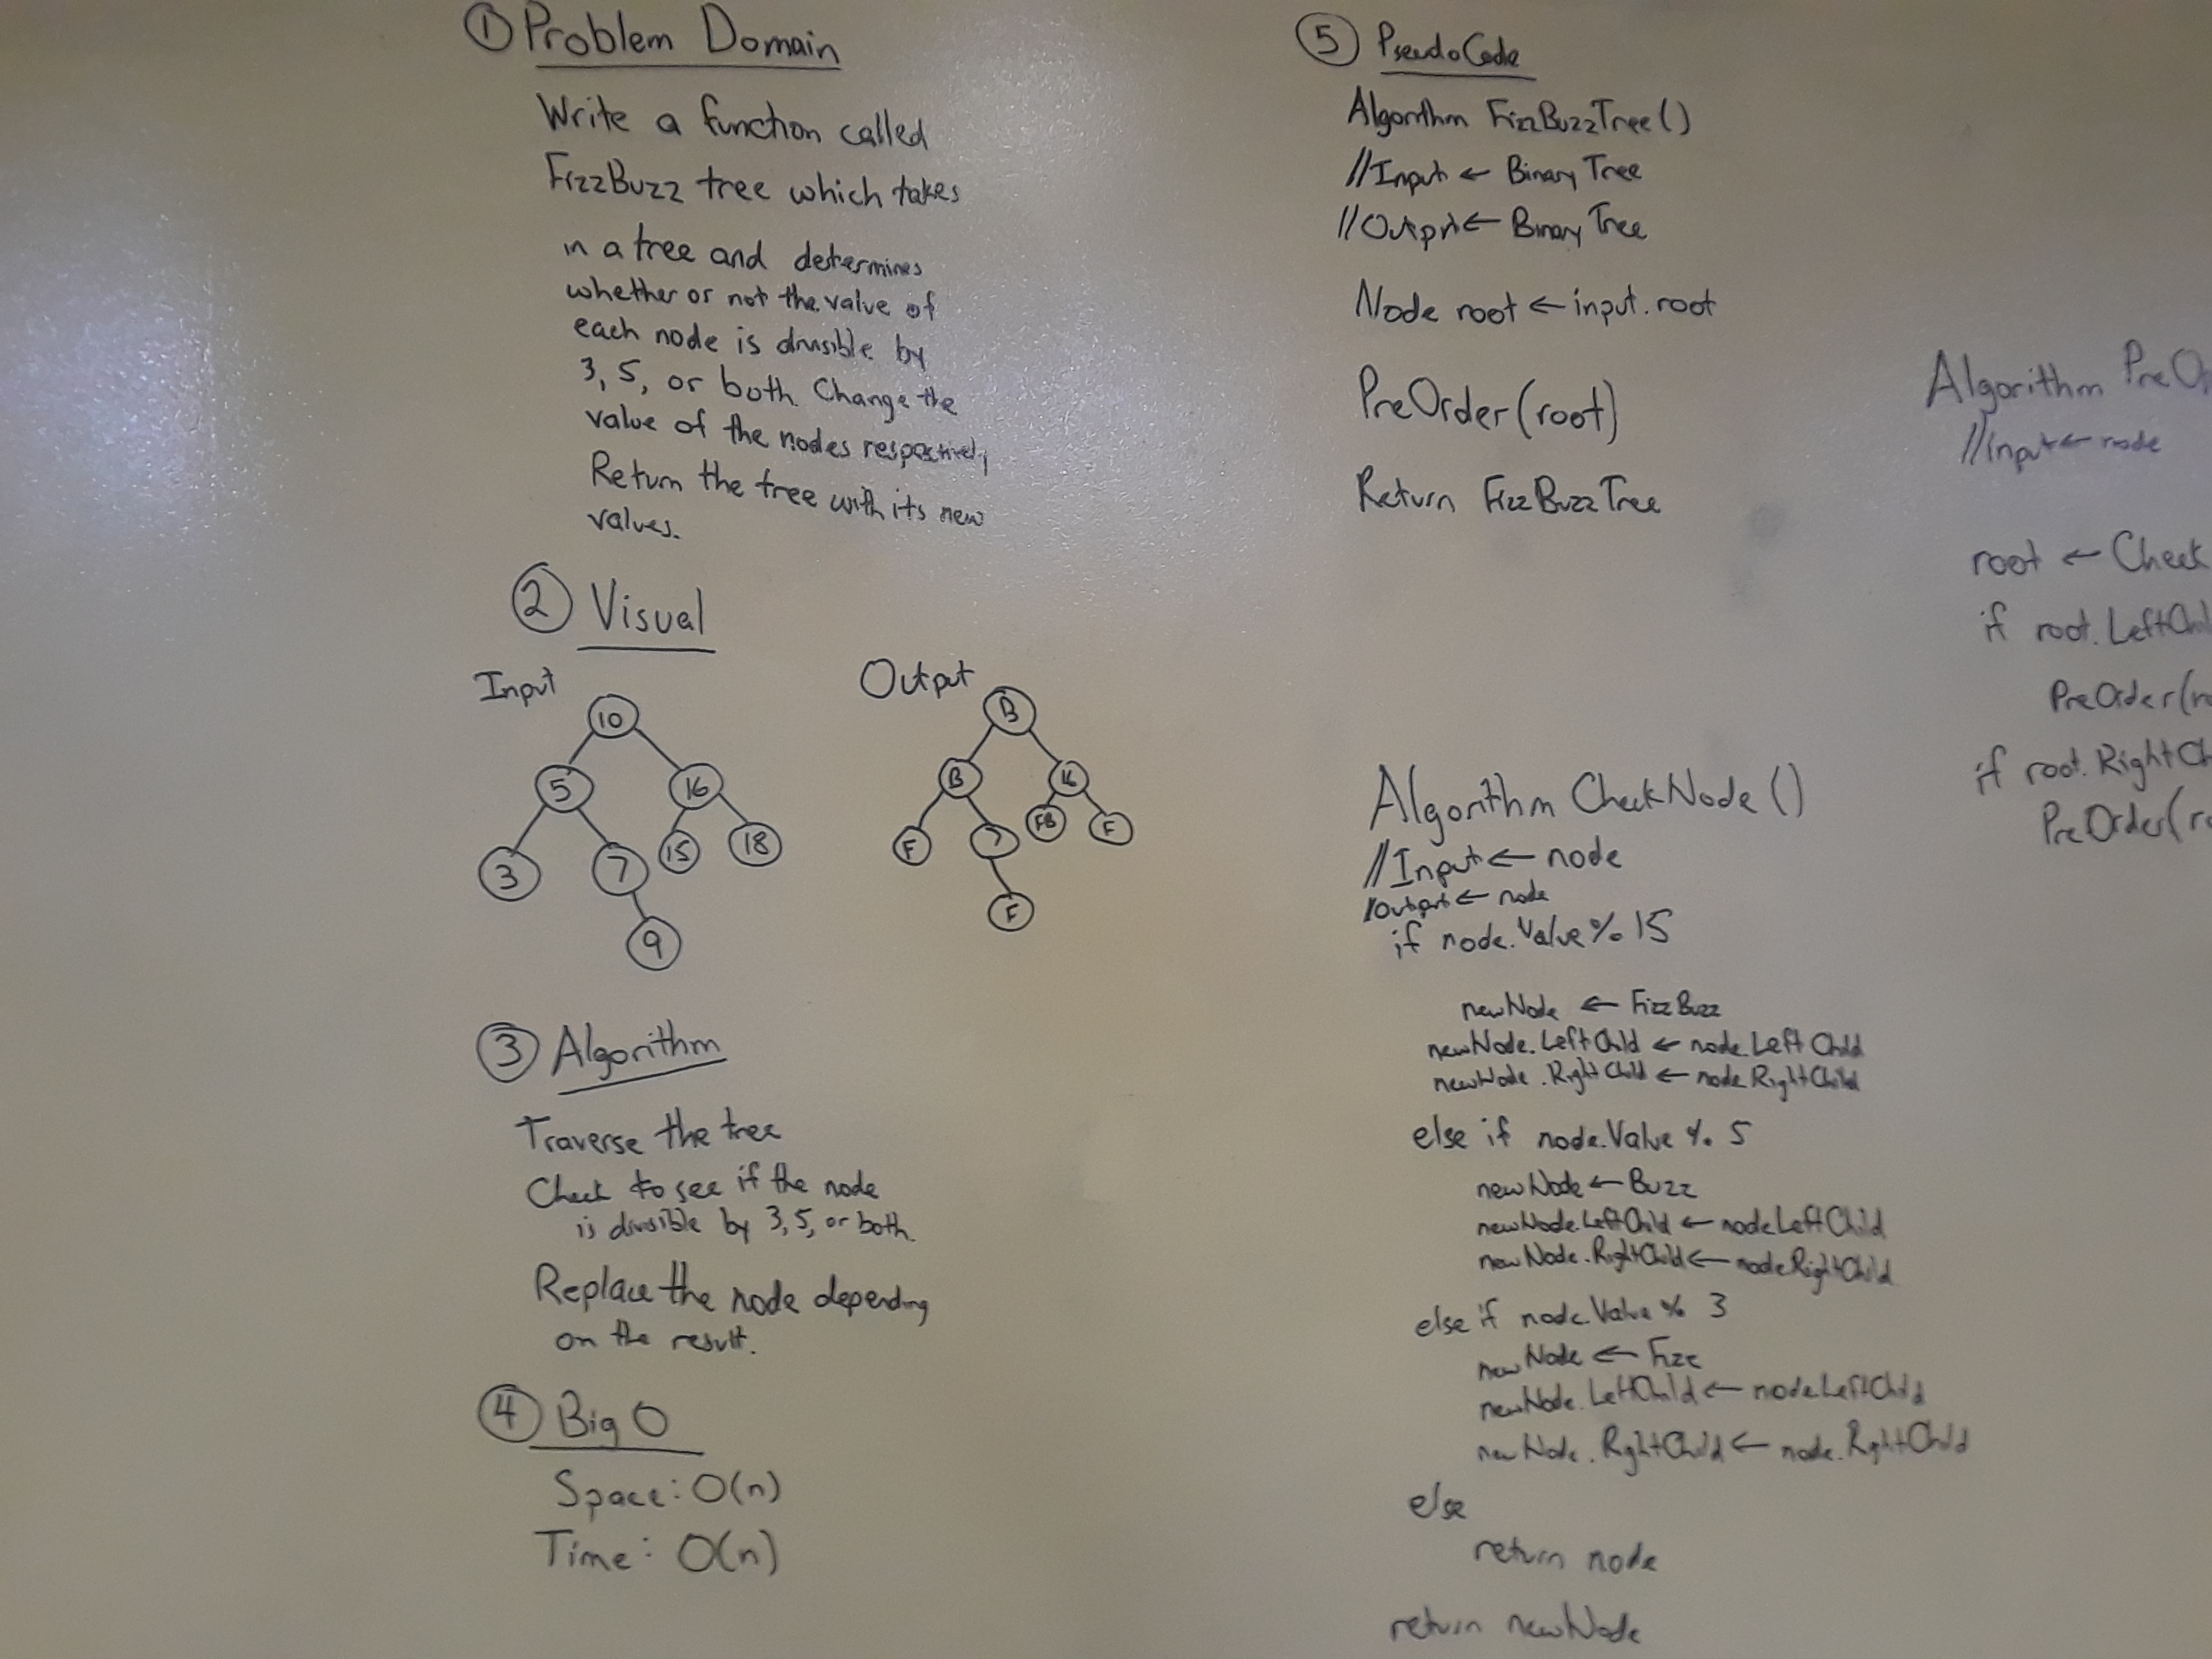 ① Problem Domain
Write a function called
FizzBuzz tree which takes
in a tree and determines
whether or not the value of
each node is divisible by
3, 5, or both. Change the
value of the nodes respectively
Return the tree with its new
values.
② Visual
Input
10
5 16
3 7 15 18
9
Output
B
B 16
F 7 FB F
F
③ Algorithm
Traverse the tree
Check to see if the node
is divisible by 3, 5, or both.
Replace the node depending
on the result.
④ Big O
Space: O(n)
Time: O(n)
⑤ PseudoCode
Algorithm FizzBuzzTree()
//Input ← Binary Tree
//Output ← Binary Tree
Node root ← input.root
PreOrder(root)
Return FizzBuzzTree
Algorithm CheckNode()
//Input ← node
//Output ← node
if node.Value % 15
newNode ← FizzBuzz
newNode.LeftChild ← node.LeftChild
newNode.RightChild ← node.RightChild
else if node.Value % 5
newNode ← Buzz
newNode.LeftChild ← node.LeftChild
newNode.RightChild ← node.RightChild
else if node.Value % 3
newNode ← Fizz
newNode.LeftChild ← node.LeftChild
newNode.RightChild ← node.RightChild
else
return node
return newNode
Algorithm PreO
//input ← node
root ← Check
if root.LeftChil
PreOrder(ro
if root.RightCh
PreOrder(ro